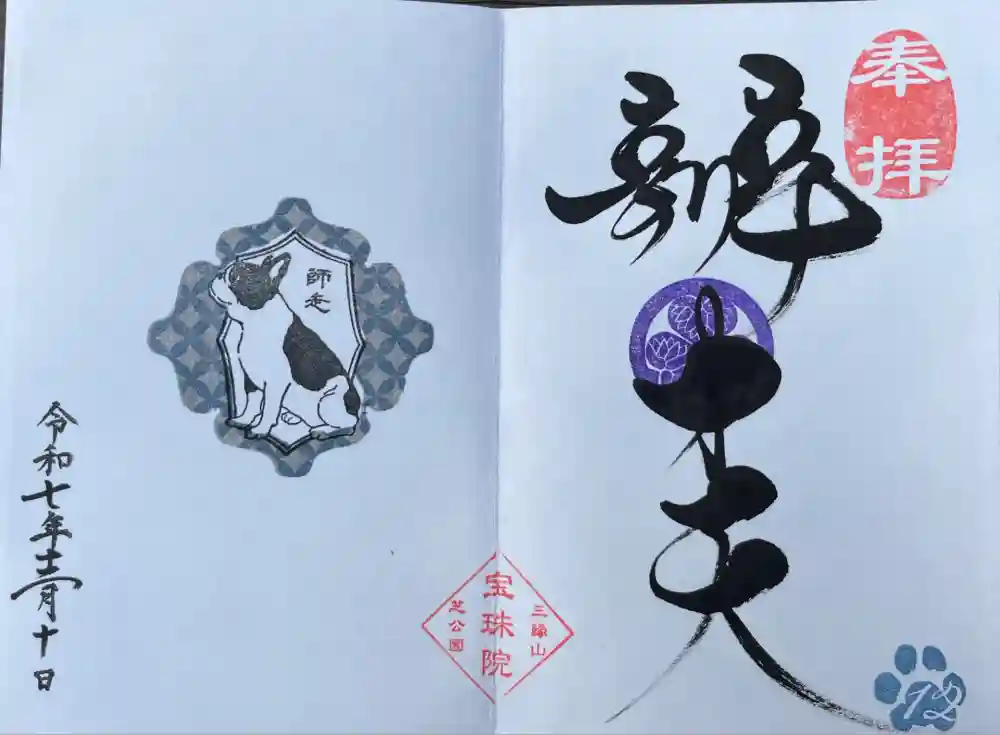 奉拝
辨才天
12
三縁山
宝珠院
芝公園
師走
令和七年十二月十日